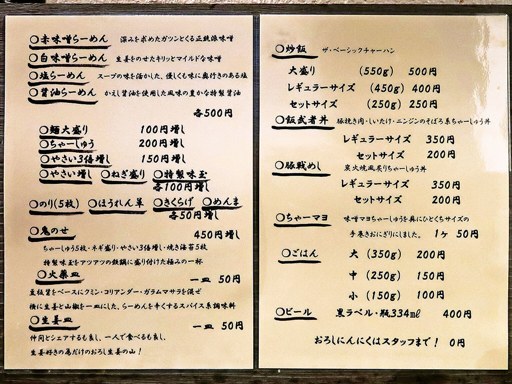 ○赤味噌らーめん 深みを求めたガツンとくる正統派味噌
○白味噌らーめん 生姜をのせたキリッとマイルドな味噌
○塩らーめん スープの味を活かした、優しくも味に奥行きのある塩
○醤油らーめん かえし醤油を使用した風味の豊かな特製醤油
各500円
○麺大盛り 100円増し
○ちゃーしゅう 200円増し
○やさい3倍増し 150円増し
○やさい増し ○ねぎ盛り ○特製味玉
各100円増し
○のり(5枚) ○ほうれん草 ○きくらげ ○めんま
各50円増し
○鬼のせ 450円増し
ちゃーしゅう5枚・ネギ盛り・やさい3倍増し・焼き海苔5枚
特製味玉をアツアツの鉄鍋に盛り付けた極みの一杯
○火薬皿 一皿 50円
豆板醤をベースにクミン・コリアンダー・ガラムマサラを混ぜ
横に生姜と山椒を一皿にした、らーめんを辛くするスパイス系調味料
○生姜皿 一皿 50円
仲間とシェアするも良し、一人で食べるも良し、
生姜好きの為だけのおろし生姜の山！
○炒飯 ザ・ベーシックチャーハン
大盛り (550g) 500円
レギュラーサイズ (450g) 400円
セットサイズ (250g) 250円
○飯武者丼 豚挽き肉・しいたけ・ニンジンのそぼろ系ちゃーしゅう丼
レギュラーサイズ 350円
セットサイズ 200円
○豚戦めし 炭火焼風炙りちゃーしゅう丼
レギュラーサイズ 350円
セットサイズ 200円
○ちゃーマヨ 味噌マヨちゃーしゅうを具にひとくちサイズの
手巻きおにぎりにしました。 1ヶ 50円
○ごはん 大 (350g) 200円
中 (250g) 150円
小 (150g) 100円
○ビール 黒ラベル・瓶334ml 400円
おろしにんにくはスタッフまで！ 0円